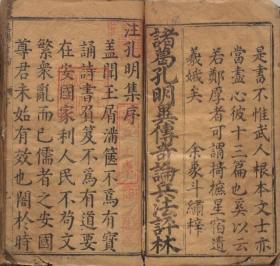 是書不惟武人根本文士亦
當盡心彼十三篇也奚以云
若鄭厚者可謂掎摭星宿遺
羲娥矣 余象斗繡梓
諸葛孔明異傳奇論註解評林
注孔明集序
蓋聞玉屑滿篋不為有寶
誦詩書負笈不為有道要
在安國家利人民不苟文
繁衆亂而已儒者之安
尊君未始有效也闇於時